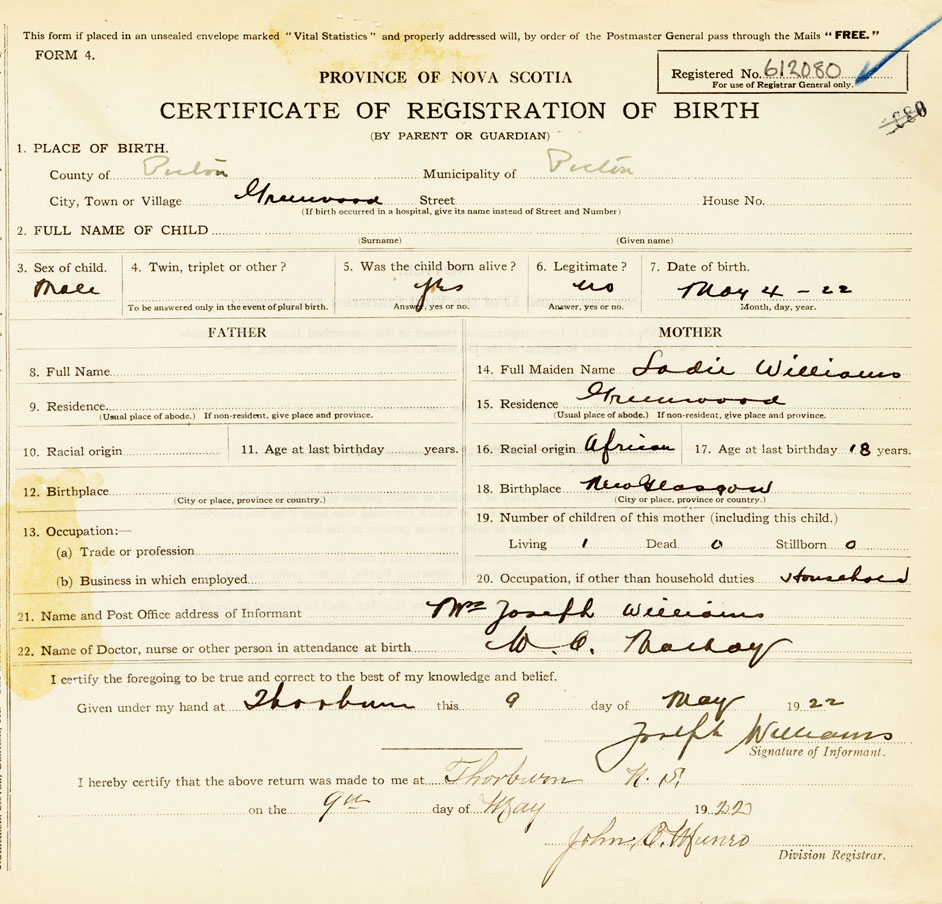 This form if placed in an unsealed envelope marked "Vital Statistics" and properly addressed will, by order of the Postmaster General pass through the Mails "FREE."
FORM 4.
Registered No. 612080
For use of Registrar General only.
PROVINCE OF NOVA SCOTIA
CERTIFICATE OF REGISTRATION OF BIRTH
(BY PARENT OR GUARDIAN)
1. PLACE OF BIRTH.
County of Pictou Municipality of Pictou
City, Town or Village Greenwood Street House No.
(If birth occurred in a hospital, give its name instead of Street and Number)
2. FULL NAME OF CHILD
(Surname) (Given name)
3. Sex of child. 4. Twin, triplet or other? 5. Was the child born alive? 6. Legitimate? 7. Date of birth.
Male yes no May 4 - 22
To be answered only in the event of plural birth. Answer, yes or no. Answer, yes or no. Month, day, year.
FATHER
8. Full Name
9. Residence
(Usual place of abode.) If non-resident, give place and province.
10. Racial origin 11. Age at last birthday years.
12. Birthplace
(City or place, province or country.)
13. Occupation:—
(a) Trade or profession
(b) Business in which employed
MOTHER
14. Full Maiden Name Sadie Williams
15. Residence Greenwood
(Usual place of abode.) If non-resident, give place and province.
16. Racial origin African 17. Age at last birthday 18 years.
18. Birthplace New Glasgow
(City or place, province or country.)
19. Number of children of this mother (including this child.)
Living 1 Dead 0 Stillborn 0
20. Occupation, if other than household duties Household
21. Name and Post Office address of Informant Mrs Joseph Williams
22. Name of Doctor, nurse or other person in attendance at birth W. C. MacKay
I certify the foregoing to be true and correct to the best of my knowledge and belief.
Given under my hand at Thorburn this 9 day of May 1922
Joseph Williams
Signature of Informant.
I hereby certify that the above return was made to me at Thorburn N. S.
on the 9th day of May 1922
John Munro
Division Registrar.